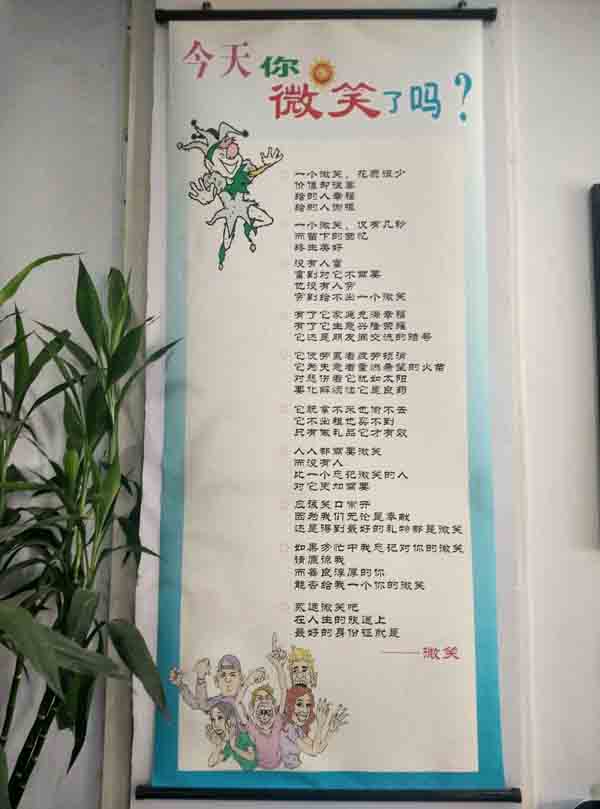 今天你
微笑了吗？
一小微笑，花费很少
价值却很高
给的人幸福
给的人谢报
一小微笑，仅有几秒
而留下的回忆
终生美好
没有人富
富到对它不需要
也没有人穷
穷到给不出一个微笑
有了它家庭充满幸福
有了它生意兴隆荣耀
它还是朋友间交流的暗号
它使劳累者疲劳顿消
它为失意者重燃希望的火苗
对悲伤者它犹如太阳
要化解误法它是良药
它既拿不来也偷不去
它不出租也买不到
只有做礼品它才有效
人人都需要微笑
而没有人
比一个忘记微笑的人
对它更加需要
应该笑口常开
因为我们无论是奉献
还是得到最好的礼物都是微笑
如果匆忙中我忘记对你的微笑
请原谅我
而善良淳厚的你
能否给我一个你的微笑
永远微笑吧
在人生的旅途上
最好的身份证就是
——微笑